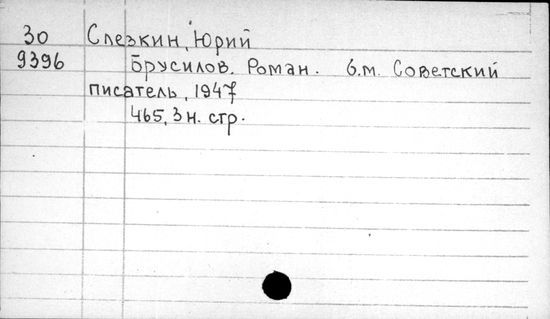 30 Слезкин, Юрий
9396 Брусилов. Роман. б.м. Советский
писатель, 1947
465, 3 н. стр.